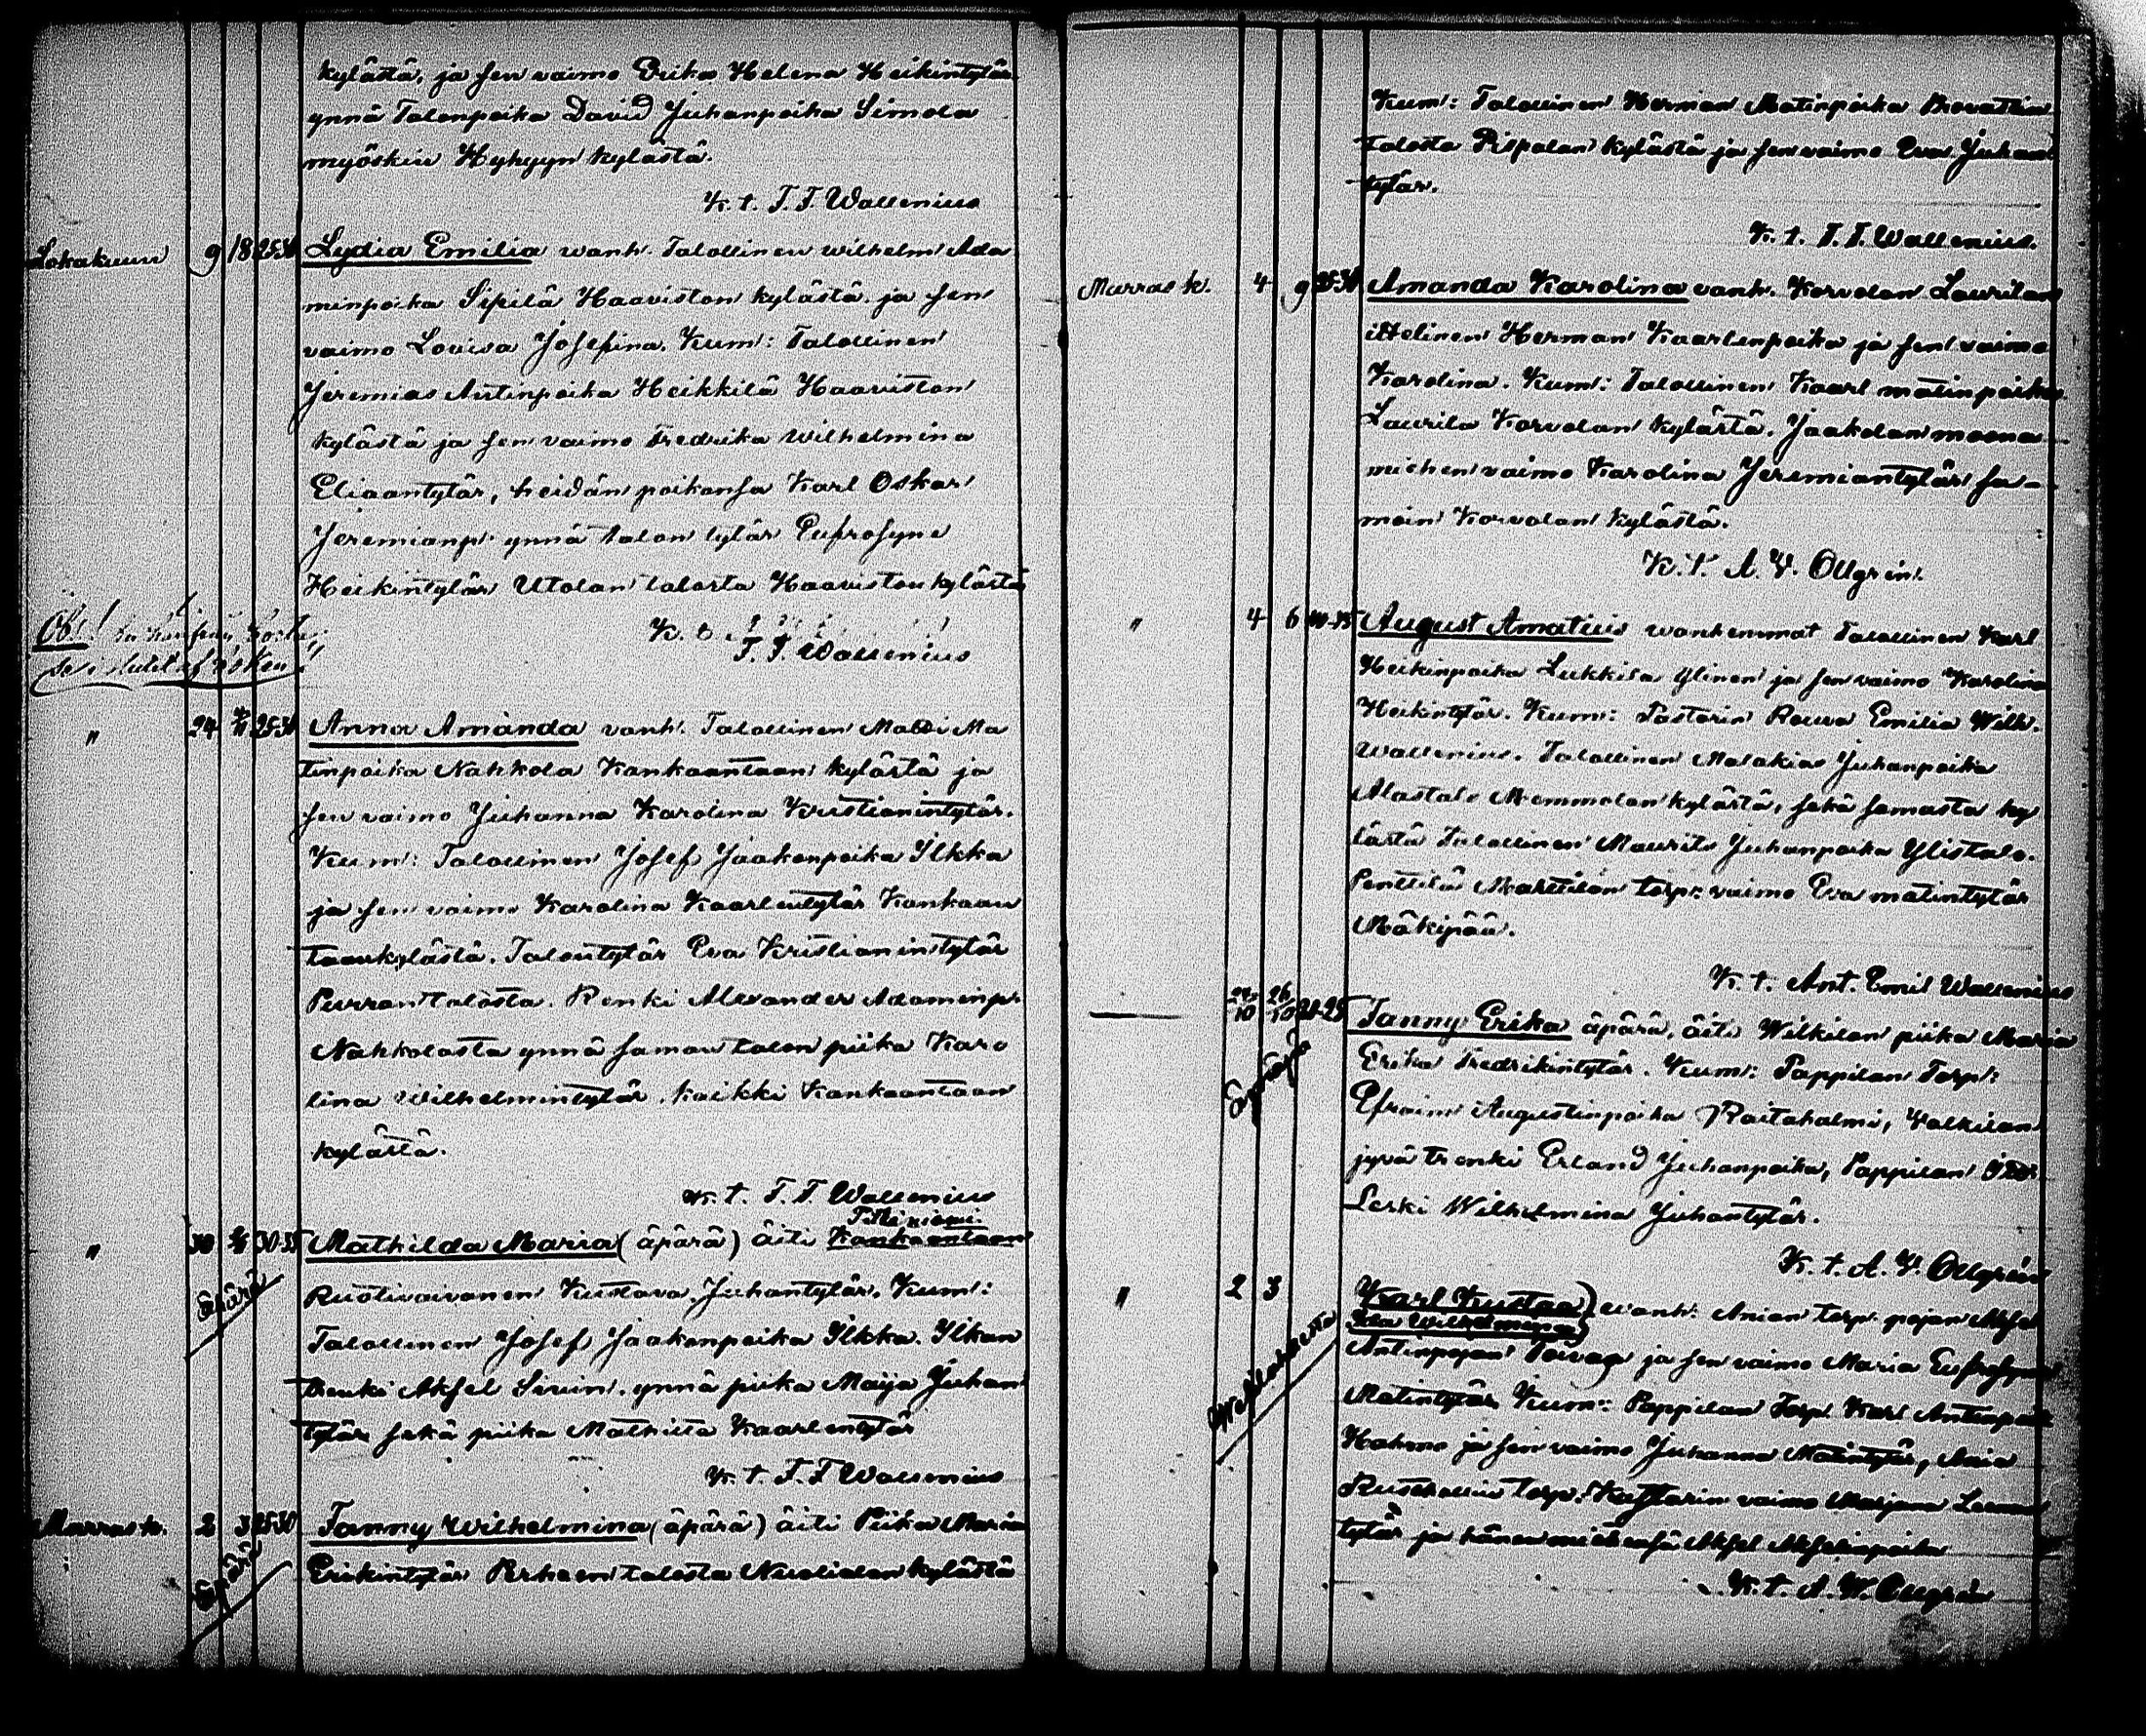 kylästä, ja sen vaimo Erika Helena Heikintytär
ynnä Talonpoika David Juhanpoika Simola
myöskin Hyhyyn kylästä.
K. t. F. F. Wallenius
Lokakuun 9 18 25-30 Lydia Emilia vanh. Talollinen Wilhelm Ada
minpoika Sipilä Haaviston kylästä ja sen
vaimo Lovisa Josefina. Kum: Talollinen
Jeremias Antinpoika Heikkilä Haaviston
kylästä ja sen vaimo Fredrika Wilhelmina
Eliaantytär, heidän poikansa Karl Oskar
Jeremianp. ynnä talon tytär Eufrosyne
Heikintytär Utolan talosta Haaviston kylästä
K. t.
F. F. Wallenius
Obs!
" 24 25-30 Anna Amanda vanh. Talollinen Matti Ma
tinpoika Nahkola Kankaantaan kylästä ja
sen vaimo Juhanna Karolina Kristianintytär.
Kum: Talollinen Josef Jaakonpoika Ilkka
ja sen vaimo Karolina Kaarlentytär Kankaan
taankylästä. Talontytär Eva Kristianintytär
Purran talosta. Renki Alexander Adaminp.
Nahkolasta ynnä saman talon piika Karo
lina Wilhelmintytär. kaikki Kankaantaan
kylästä.
K. t. F. F Wallenius
" 30 30-35 Mathilda Maria (äpärä) äiti Kankaantaan
Äpärä
Ruotivaivanen Kustava Juhantytär. Kum:
Talollinen Josef Jaakonpoika Ilkka. Ilkan
Renki Aksel Sirin. ynnä piika Maija Juhan
tytär sekä piika Mathilta Kaarlentytär
K. t. F. F Wallenius
Marrask. 2 3 25-30 Fanny Wilhelmina (äpärä) äiti Piika Maria
Äpärä
Erikintytär Perheen talosta Nuolialan kylästä
Kum: Talollinen Herman Matinpoika Provastin
talosta Pispalan kylästä ja sen vaimo Eva Juhan
tytär.
K. t. F. F. Wallenius.
Marras k. 4 9 25-30 Amanda Karolina vanh. Korvolan Laurilan
ittelinen Herman Kaarlenpoika ja sen vaimo
Karolina. Kum: Talollinen Kaarl matinpoika
Laurila Korvolan kylästä. Jaakolan moona
miehen vaimo Karolina Jeremiantytär sa-
moin Korvolan kylästä.
K. t. A. W. Ollgren.
" 4 6 30-35 August Amatius vanhemmat Talollinen Karl
Heikinpoika Lukkila Ylinen ja sen vaimo Karolina
Heikintytär. Kum: Pastorin Rouva Emilia Wilh.
Wallenius. Talollinen Malakias Juhanpoika
Alastalo Memmolan kylästä, sekä samasta ky
lästä Talollinen Maurits Juhanpoika Ylistalo.
Penttilä Marttilan torp. vaimo Eva matintytär
Mäkipää.
K. t. Ant. Emil Wallenius
24/10 26/10 20-25 Fanny Erika äpärä, äiti Wilkilan piika Maria
Äpärä
Erika Fredrikintytär. Kum: Pappilan Torp:
Efraim Augustinpoika Raitahalmi, Valkilan
jyvä trenki Erland Juhanpoika, Pappilan
Leski Wilhelmina Juhantytär.
K. t. A. W. Ollgren
" 2 3 Karl Kustaa) vanh. Anian torp. pojan Aksel
Ida Wilhelmina)
Antinpojan Toivan ja sen vaimo Maria Eufrosyna
Matintytär Kum: Pappilan Torp. Karl Antinpoik
Hahmo ja sen vaimo Juhanna Matintytär, Ania
Rusthollin torp. Kustarin vaimo Marjana Leenan
tytär ja hänen miehensä Aksel Akselinpoika
K. t. A. W. Ollgrén